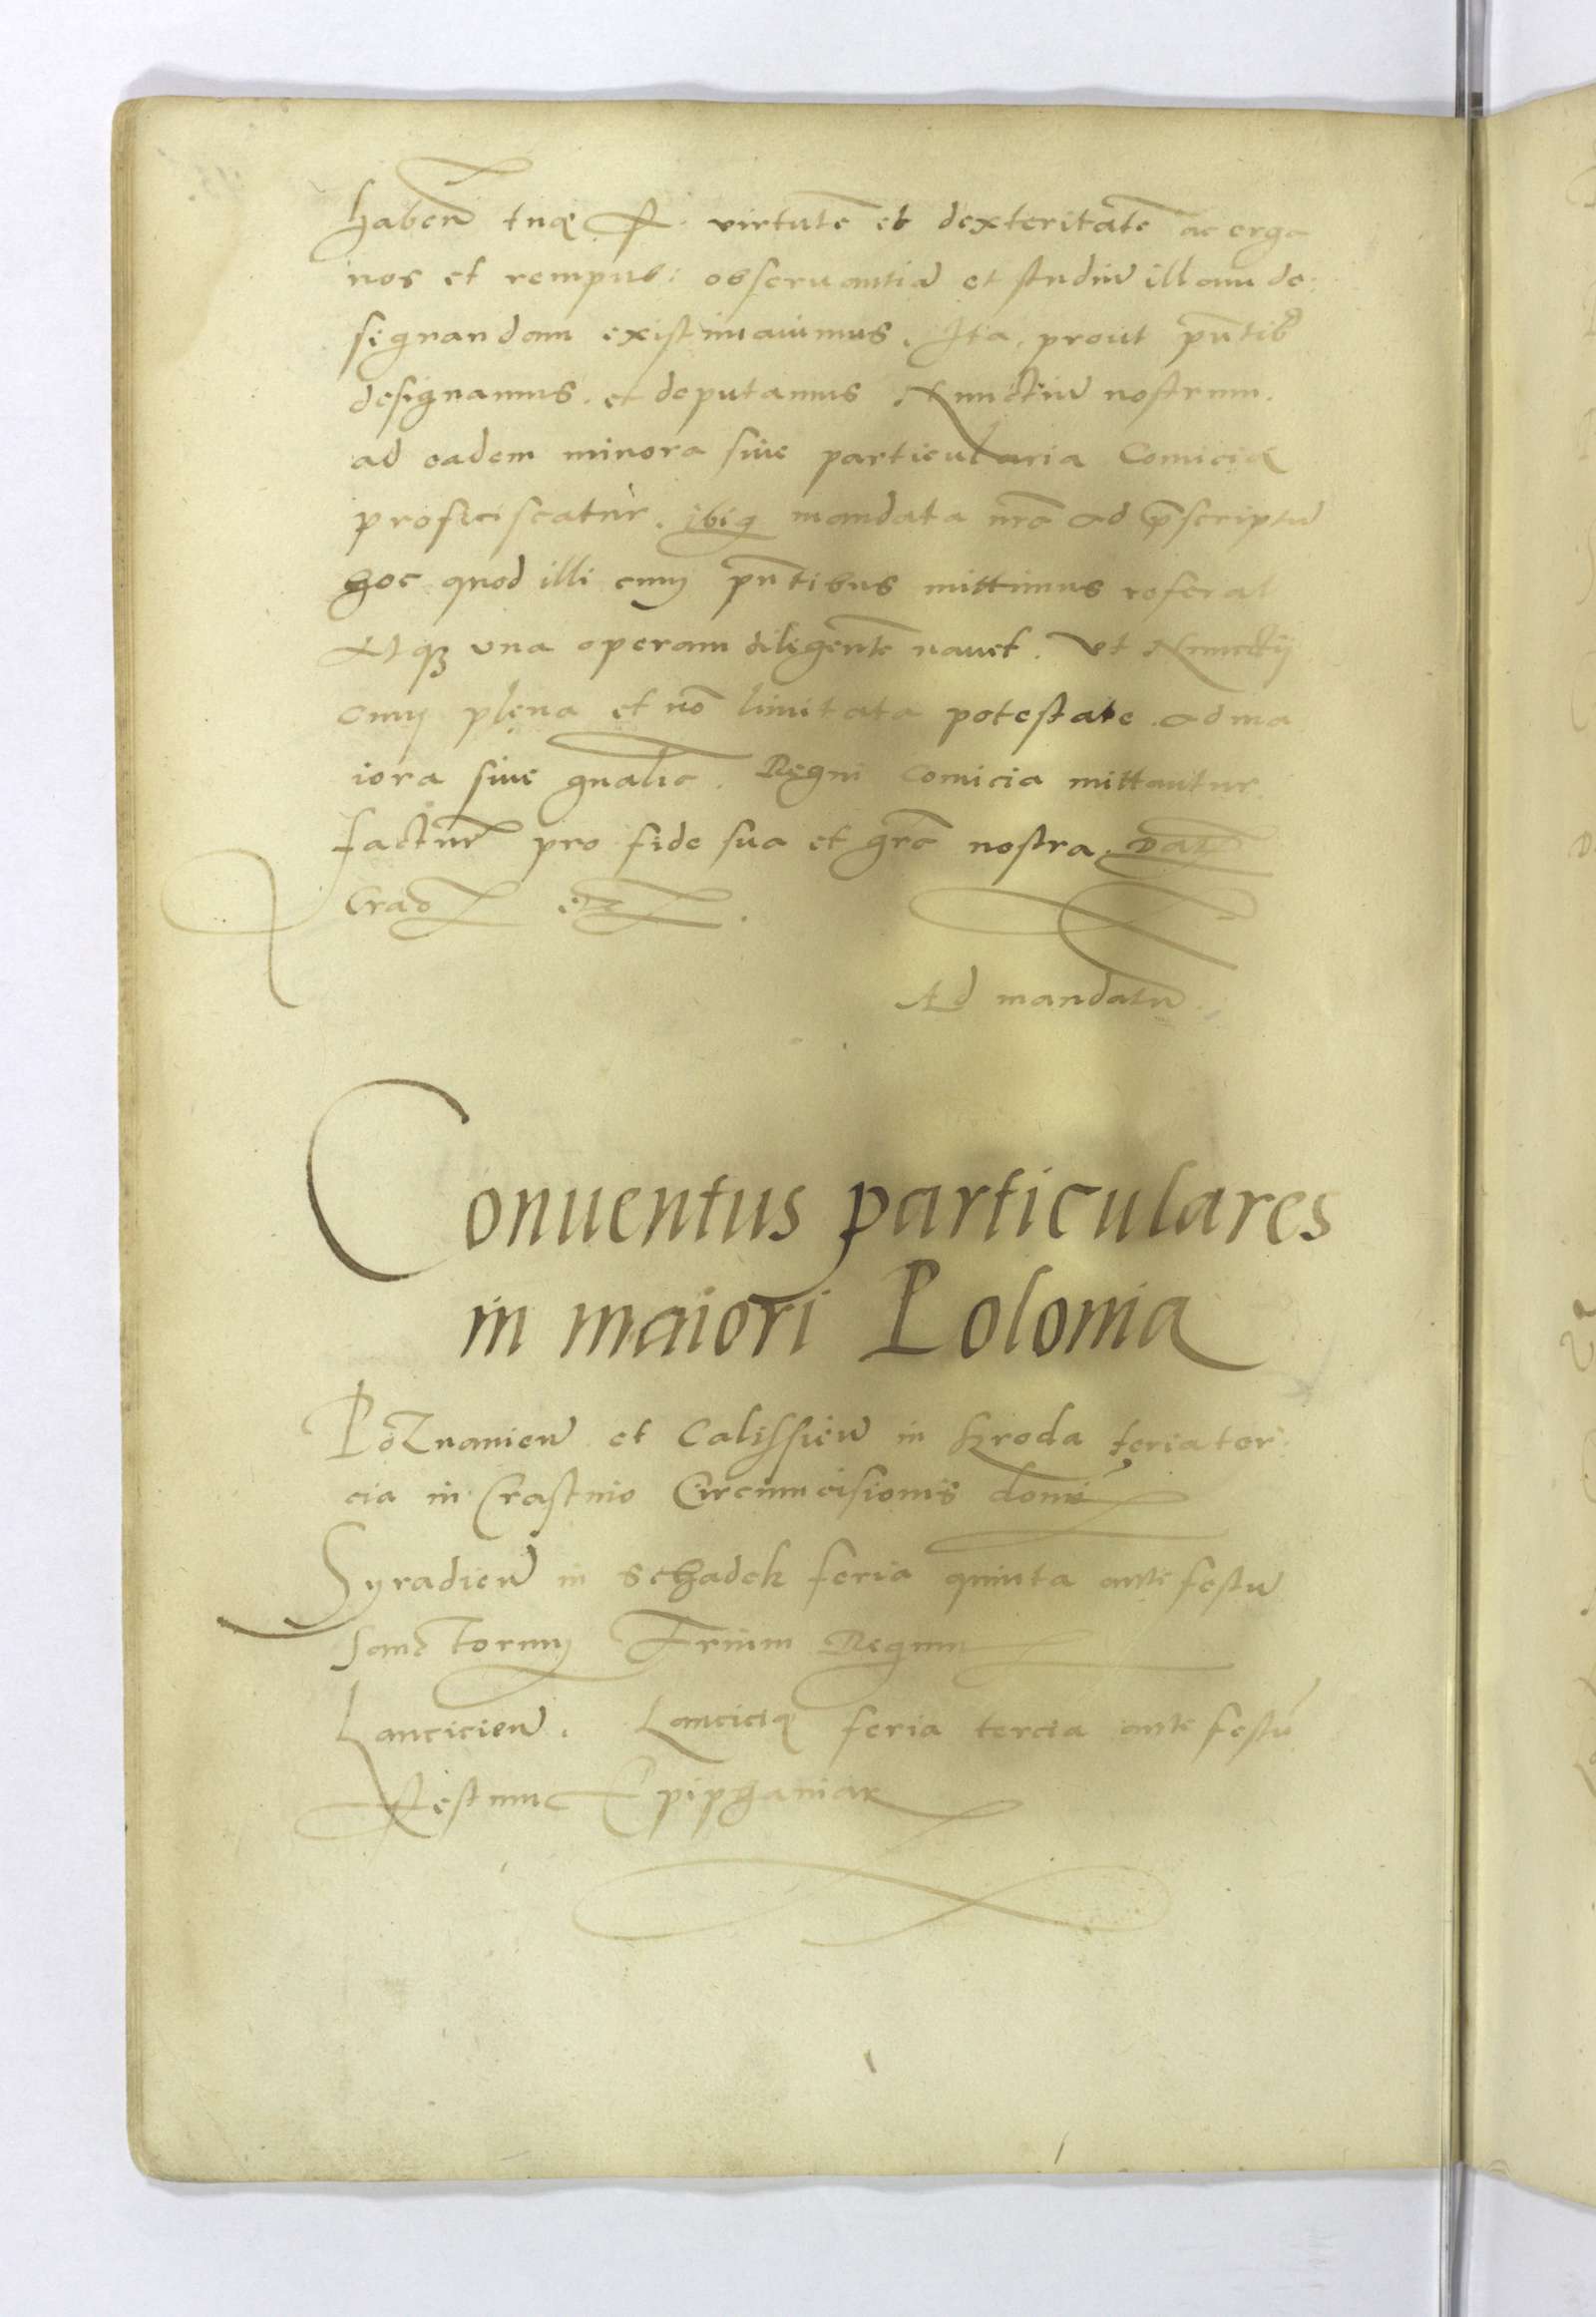 habeñ tuæ F. virtutē et dexteritatē ac erga
nos et rempub: obseruantiā et studiū illam de:
segnandam existimauimus. Ita, prout pn̄tib9
designamus. et deputamus Nunctiū nostrum.
ad eadem minora siue particularia Comicia
proficiscatur. ibiq mandata nr̄a ad p̄scriptū
hoc quod illi cum pn̄tibus mittimus referat
Atq3 vna operam diligentē nauet. vt Nunctij
cum plena et nō limitata potestate ad ma
iora siue gnalia. Regni Comicia mittantur
factur pro fide sua et gr̄a nostra. Dat
Crac̄ etc.
Ad mandatū
Conuentus particulares
in maiori Polonia
Poznanien̄ et Calissien̄ in Sroda feria ter
cia in Crastino Circumcisionis domi
Syradien̄ in Schadek feria quinta ante festū
Sanctorum Trium Regum
Lancicien̄. Lanciciæ feria tercia ante festū
Festum Epiphaniar